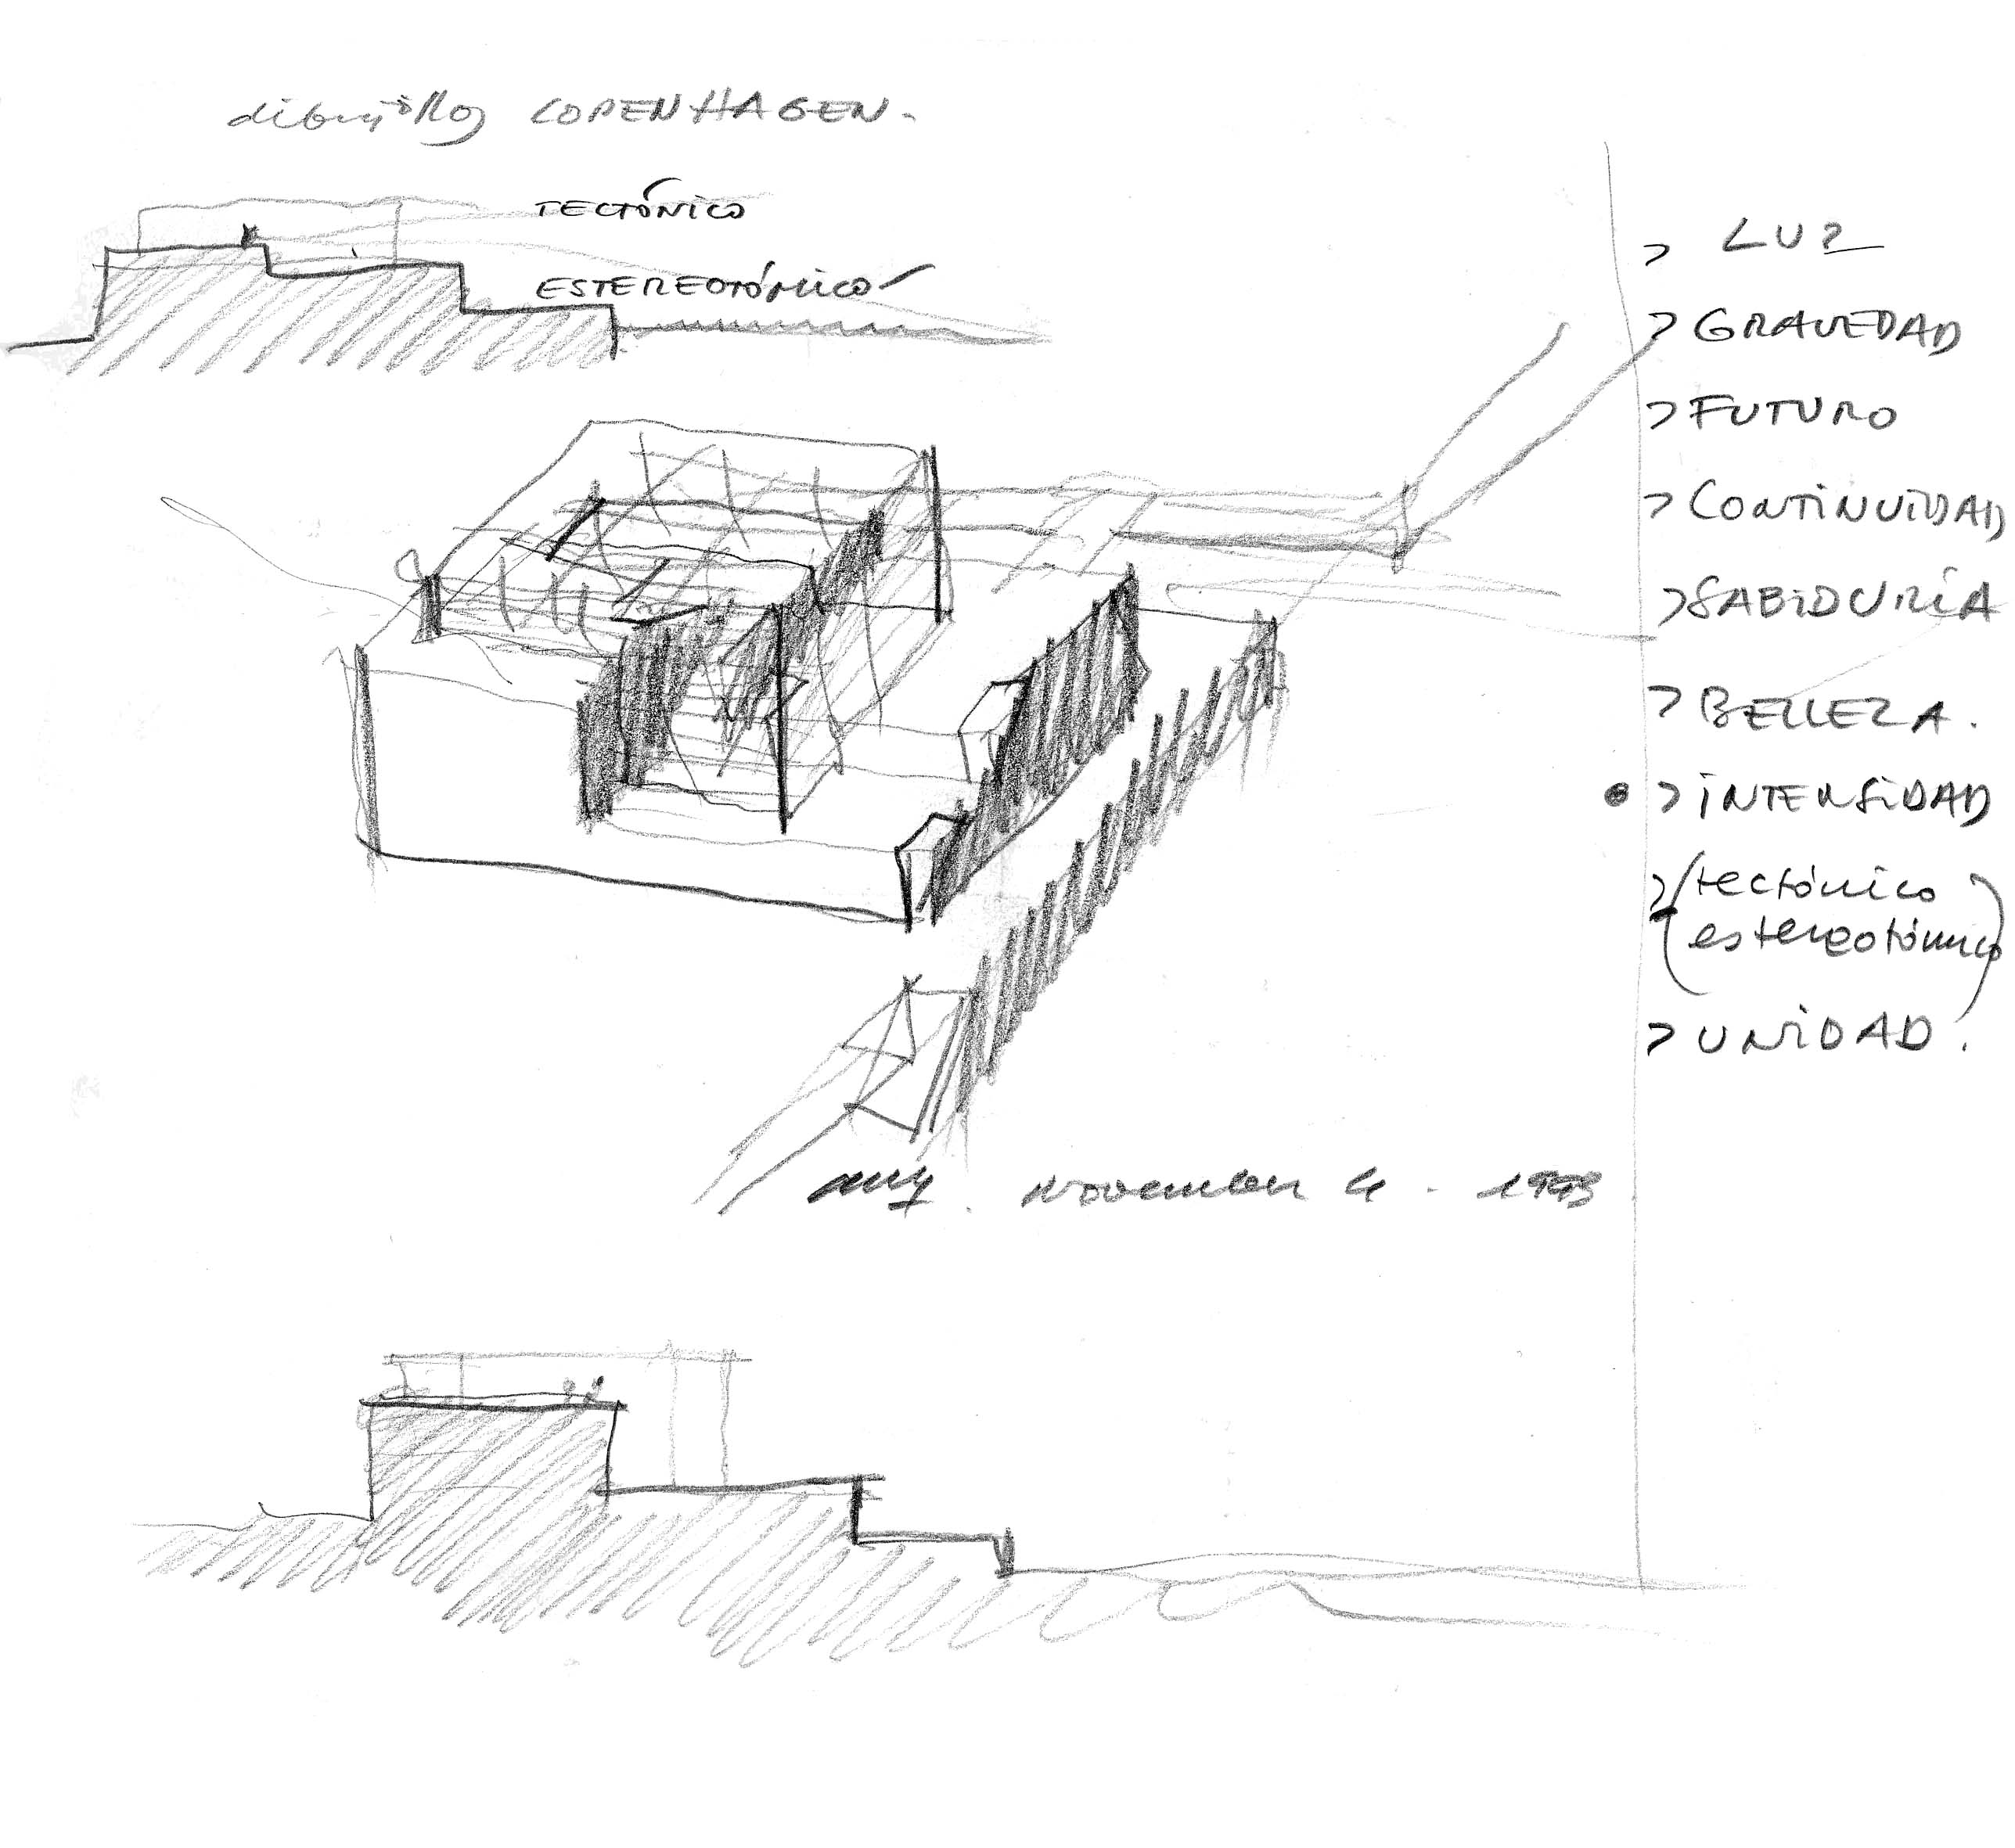 dibujillos COPENHAGEN.
TECTÓNICO
ESTEREOTÓMICO
> LUZ
> GRAVEDAD
> FUTURO
> CONTINUIDAD
> SABIDURÍA
> BELLEZA.
• > INTENSIDAD
> (tectónico
estereotómico)
> UNIDAD.
November 4. 1993